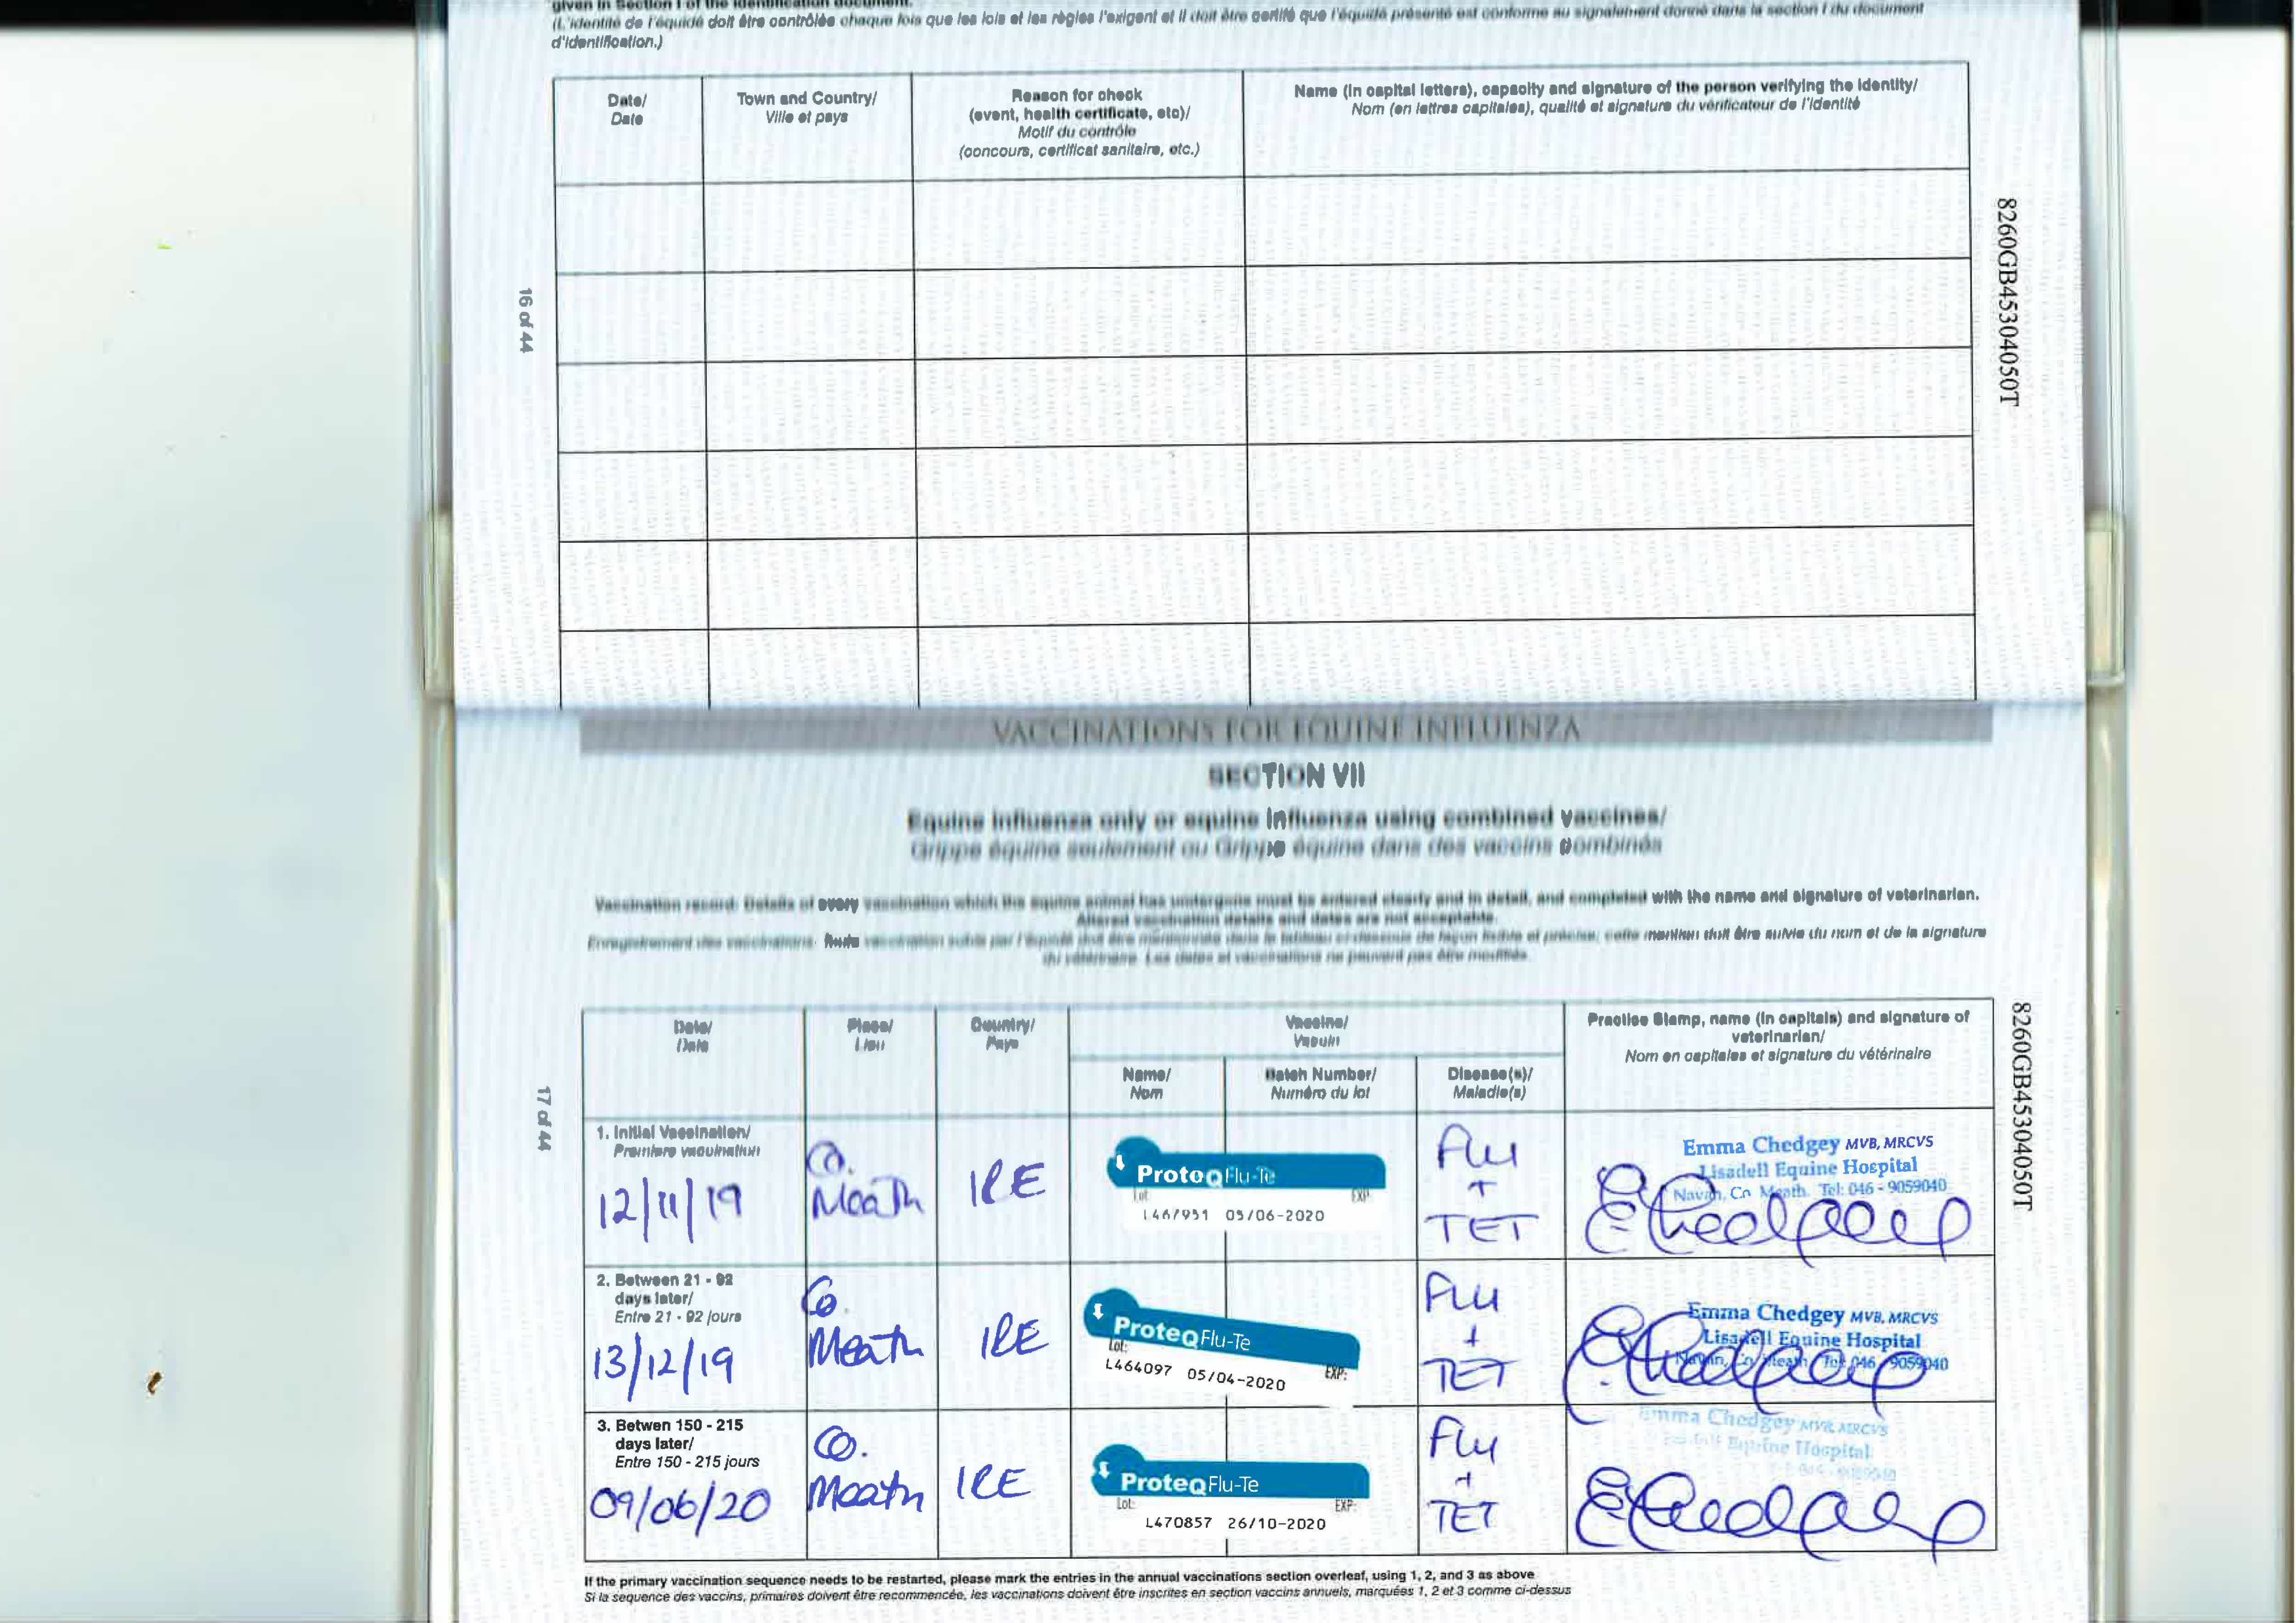 given in Section I of the identification document.
(L'identité de l'équidé doit être contrôlée chaque fois que les lois et les règles l'exigent et il doit être certifié que l'équidé présenté est conforme au signalement donné dans la section I du document
d'identification.)
Date/
Date
Town and Country/
Ville et pays
Reason for check
(event, health certificate, etc)/
Motif du contrôle
(concours, certificat sanitaire, etc.)
Name (in capital letters), capacity and signature of the person verifying the identity/
Nom (en lettres capitales), qualité et signature du vérificateur de l'identité
16 of 44
8260GB45304050T
VACCINATIONS FOR EQUINE INFLUENZA
SECTION VII
Equine influenza only or equine influenza using combined vaccines/
Grippe équine seulement ou Grippe équine dans des vaccins combinés
Vaccination record: Details of every vaccination which the equine animal has undergone must be entered clearly and in detail, and completed with the name and signature of veterinarian.
Altered vaccination details and dates are not acceptable.
Enregistrement des vaccinations. Toute vaccination subie par l'équidé doit être mentionnée dans le tableau ci-dessous de façon lisible et précise; cette mention doit être suivie du nom et de la signature
du vétérinaire. Les dates et vaccinations ne peuvent pas être modifiés.
17 of 44
8260GB45304050T
Date/
Date
Place/
Lieu
Country/
Pays
Vaccine/
Vaccin
Practice Stamp, name (in capitals) and signature of
veterinarian/
Nom en capitales et signature du vétérinaire
Name/
Nom
Batch Number/
Numéro du lot
Disease(s)/
Maladie(s)
1. Initial Vaccination/
Première vaccination
12/11/19
Co.
Meath
IRE
ProteqFlu-Te
Lot: EXP:
L467951 05/06-2020
Flu
+
TET
Emma Chedgey MVB, MRCVS
Lisadell Equine Hospital
Navan, Co Meath. Tel: 046 - 9059040
2. Between 21 - 92
days later/
Entre 21 - 92 jours
13/12/19
Co.
Meath
IRE
ProteqFlu-Te
Lot: EXP:
L464097 05/04-2020
Flu
+
TET
Emma Chedgey MVB, MRCVS
Lisadell Equine Hospital
Navan, Co Meath. Tel: 046 - 9059040
3. Betwen 150 - 215
days later/
Entre 150 - 215 jours
09/06/20
Co.
Meath
IRE
ProteqFlu-Te
Lot: EXP:
L470857 26/10-2020
Flu
+
TET
Emma Chedgey MVB, MRCVS
Equine Hospital
If the primary vaccination sequence needs to be restarted, please mark the entries in the annual vaccinations section overleaf, using 1, 2, and 3 as above
Si la sequence des vaccins, primaires doivent être recommencée, les vaccinations doivent être inscrites en section vaccins annuels, marquées 1, 2 et 3 comme ci-dessus